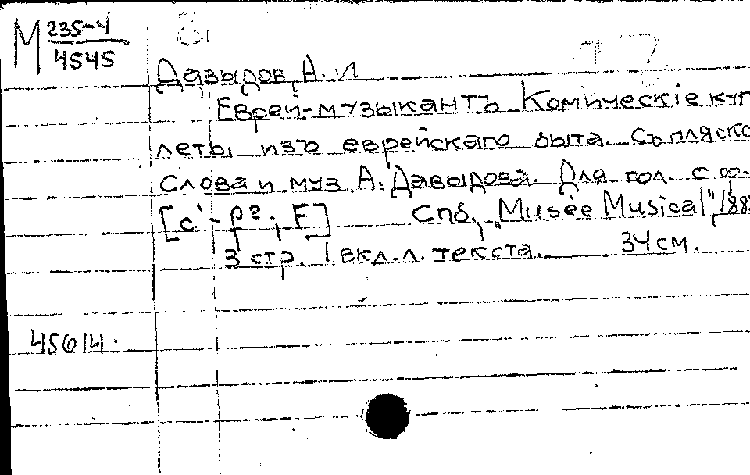 М 235-4
4545
Давыдов, А. Л
Еврей-музыкантъ Комическіе куп
леты изъ еврейскаго быта. Съ пляско
Слова и муз А. Давыдова. Для гол. с ф.
[c'-f²; F] Спб, "Musée Musical", 188
3 стр. 1 вкл. л. текста. 34 см.
45614.